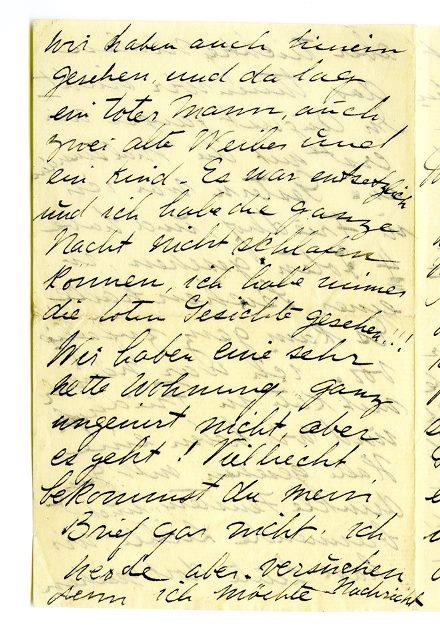 Wir haben auch hinein
gesehen, und da lag
ein toter Mann, auch
zwei alte Weiber und
ein Kind - Es war entsetzlich
und ich habe die ganze
Nacht nicht schlafen
können, ich habe immer
die toten Gesichte gesehen!!!
Wir haben eine sehr
nette Wohnung, ganz
ungeniert nicht, aber
es geht! Vielleicht
bekommst du mein
Brief gar nicht. ich
werde aber versuchen
denn ich möchte Nachricht